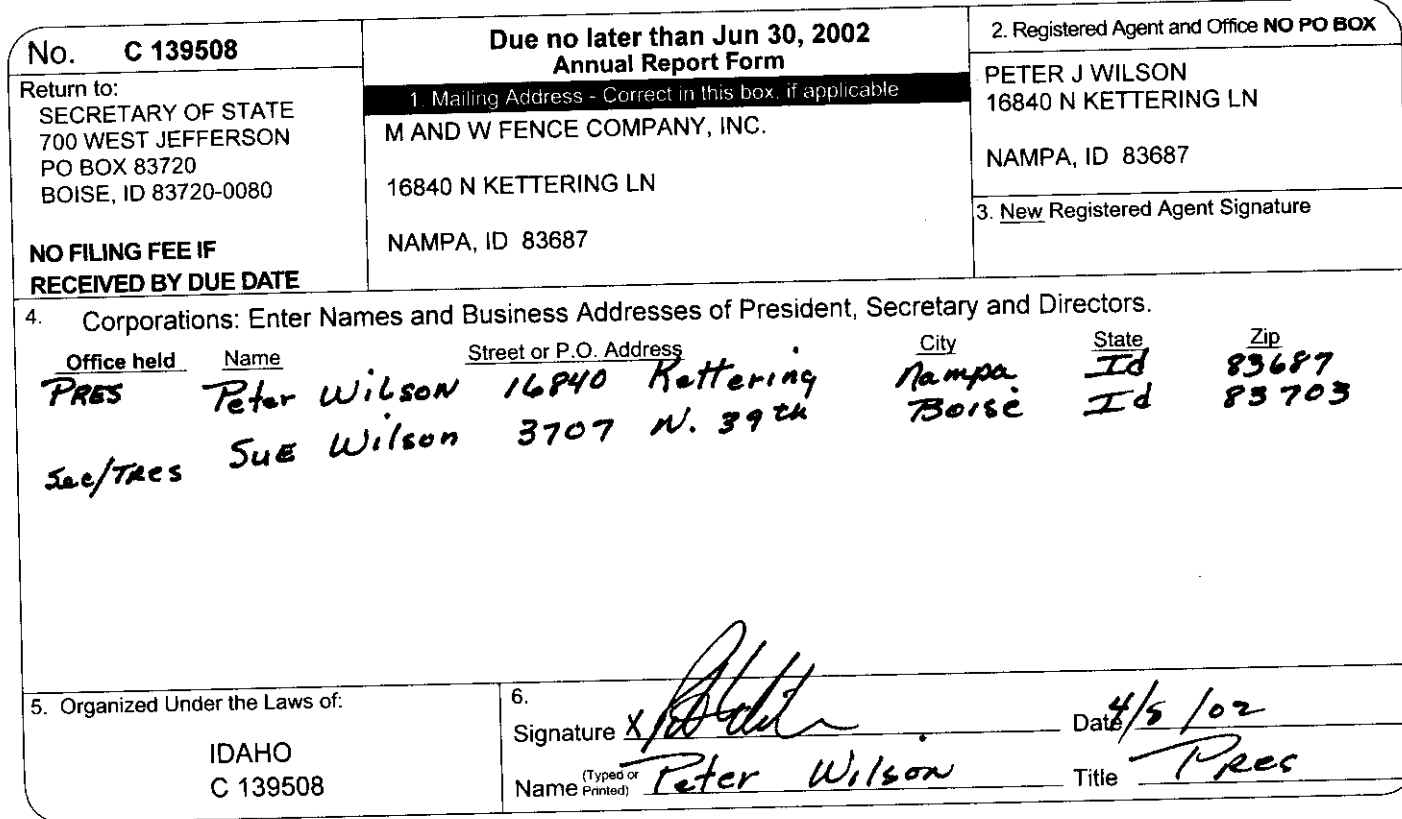 No. C 139508
Return to:
SECRETARY OF STATE
700 WEST JEFFERSON
PO BOX 83720
BOISE, ID 83720-0080
NO FILING FEE IF
RECEIVED BY DUE DATE
Due no later than Jun 30, 2002
Annual Report Form
1. Mailing Address - Correct in this box, if applicable
M AND W FENCE COMPANY, INC.
16840 N KETTERING LN
NAMPA, ID 83687
2. Registered Agent and Office NO PO BOX
PETER J WILSON
16840 N KETTERING LN
NAMPA, ID 83687
3. New Registered Agent Signature
4. Corporations: Enter Names and Business Addresses of President, Secretary and Directors.
Office held Name Street or P.O. Address City State Zip
PRES Peter Wilson 16840 Kettering Nampa Id 83687
Sec/Tres Sue Wilson 3707 N. 39th Boise Id 83703
5. Organized Under the Laws of:
IDAHO
C 139508
6.
Signature X Date 4/5/02
Name (Typed or Printed) Peter Wilson Title Pres